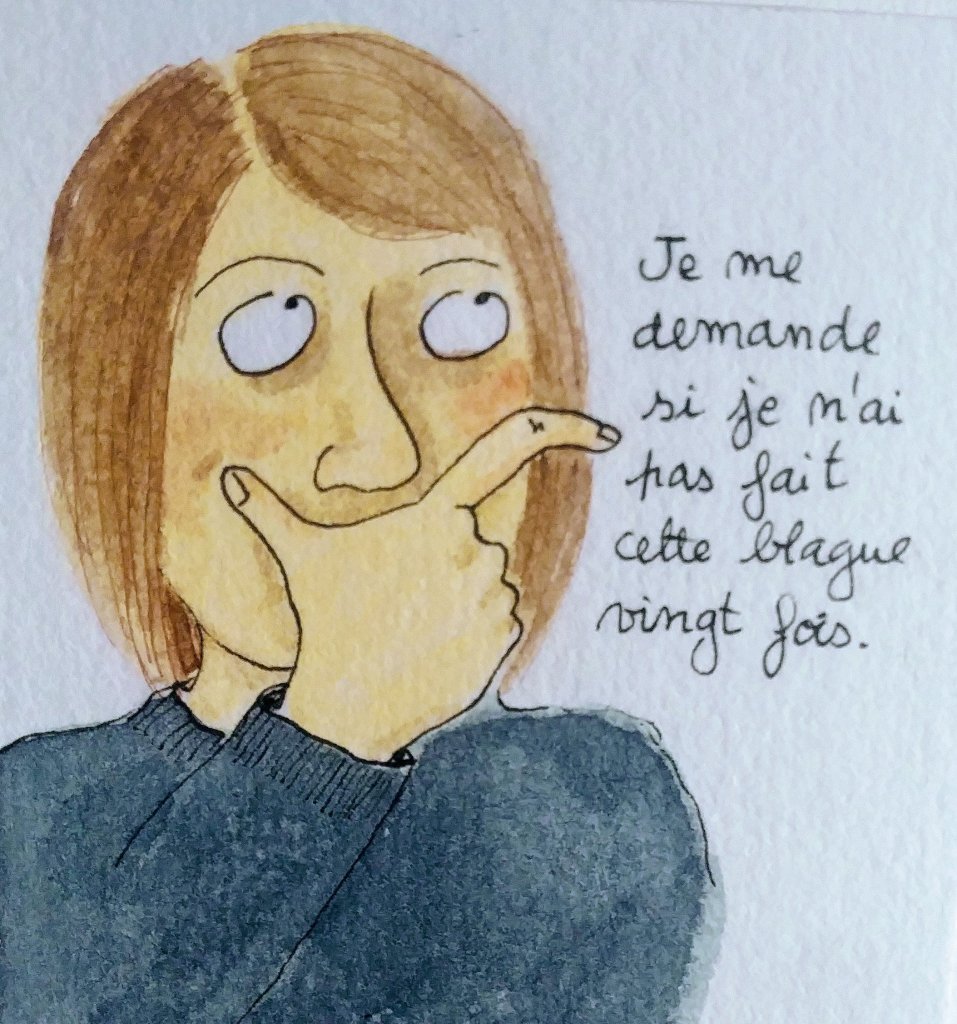 Je me
demande
si je n'ai
pas fait
cette blague
vingt fois.